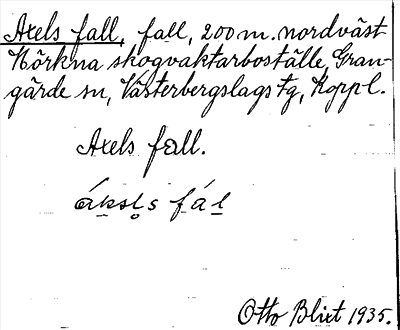 Axels fall, fall, 200 m. nordväst
Hörkna skogvaktarboställe, Gran-
gärde sn, Västerbergslags tg, Koppl.
Axels fall.
áksl̥s fál
Otto Blixt 1935.